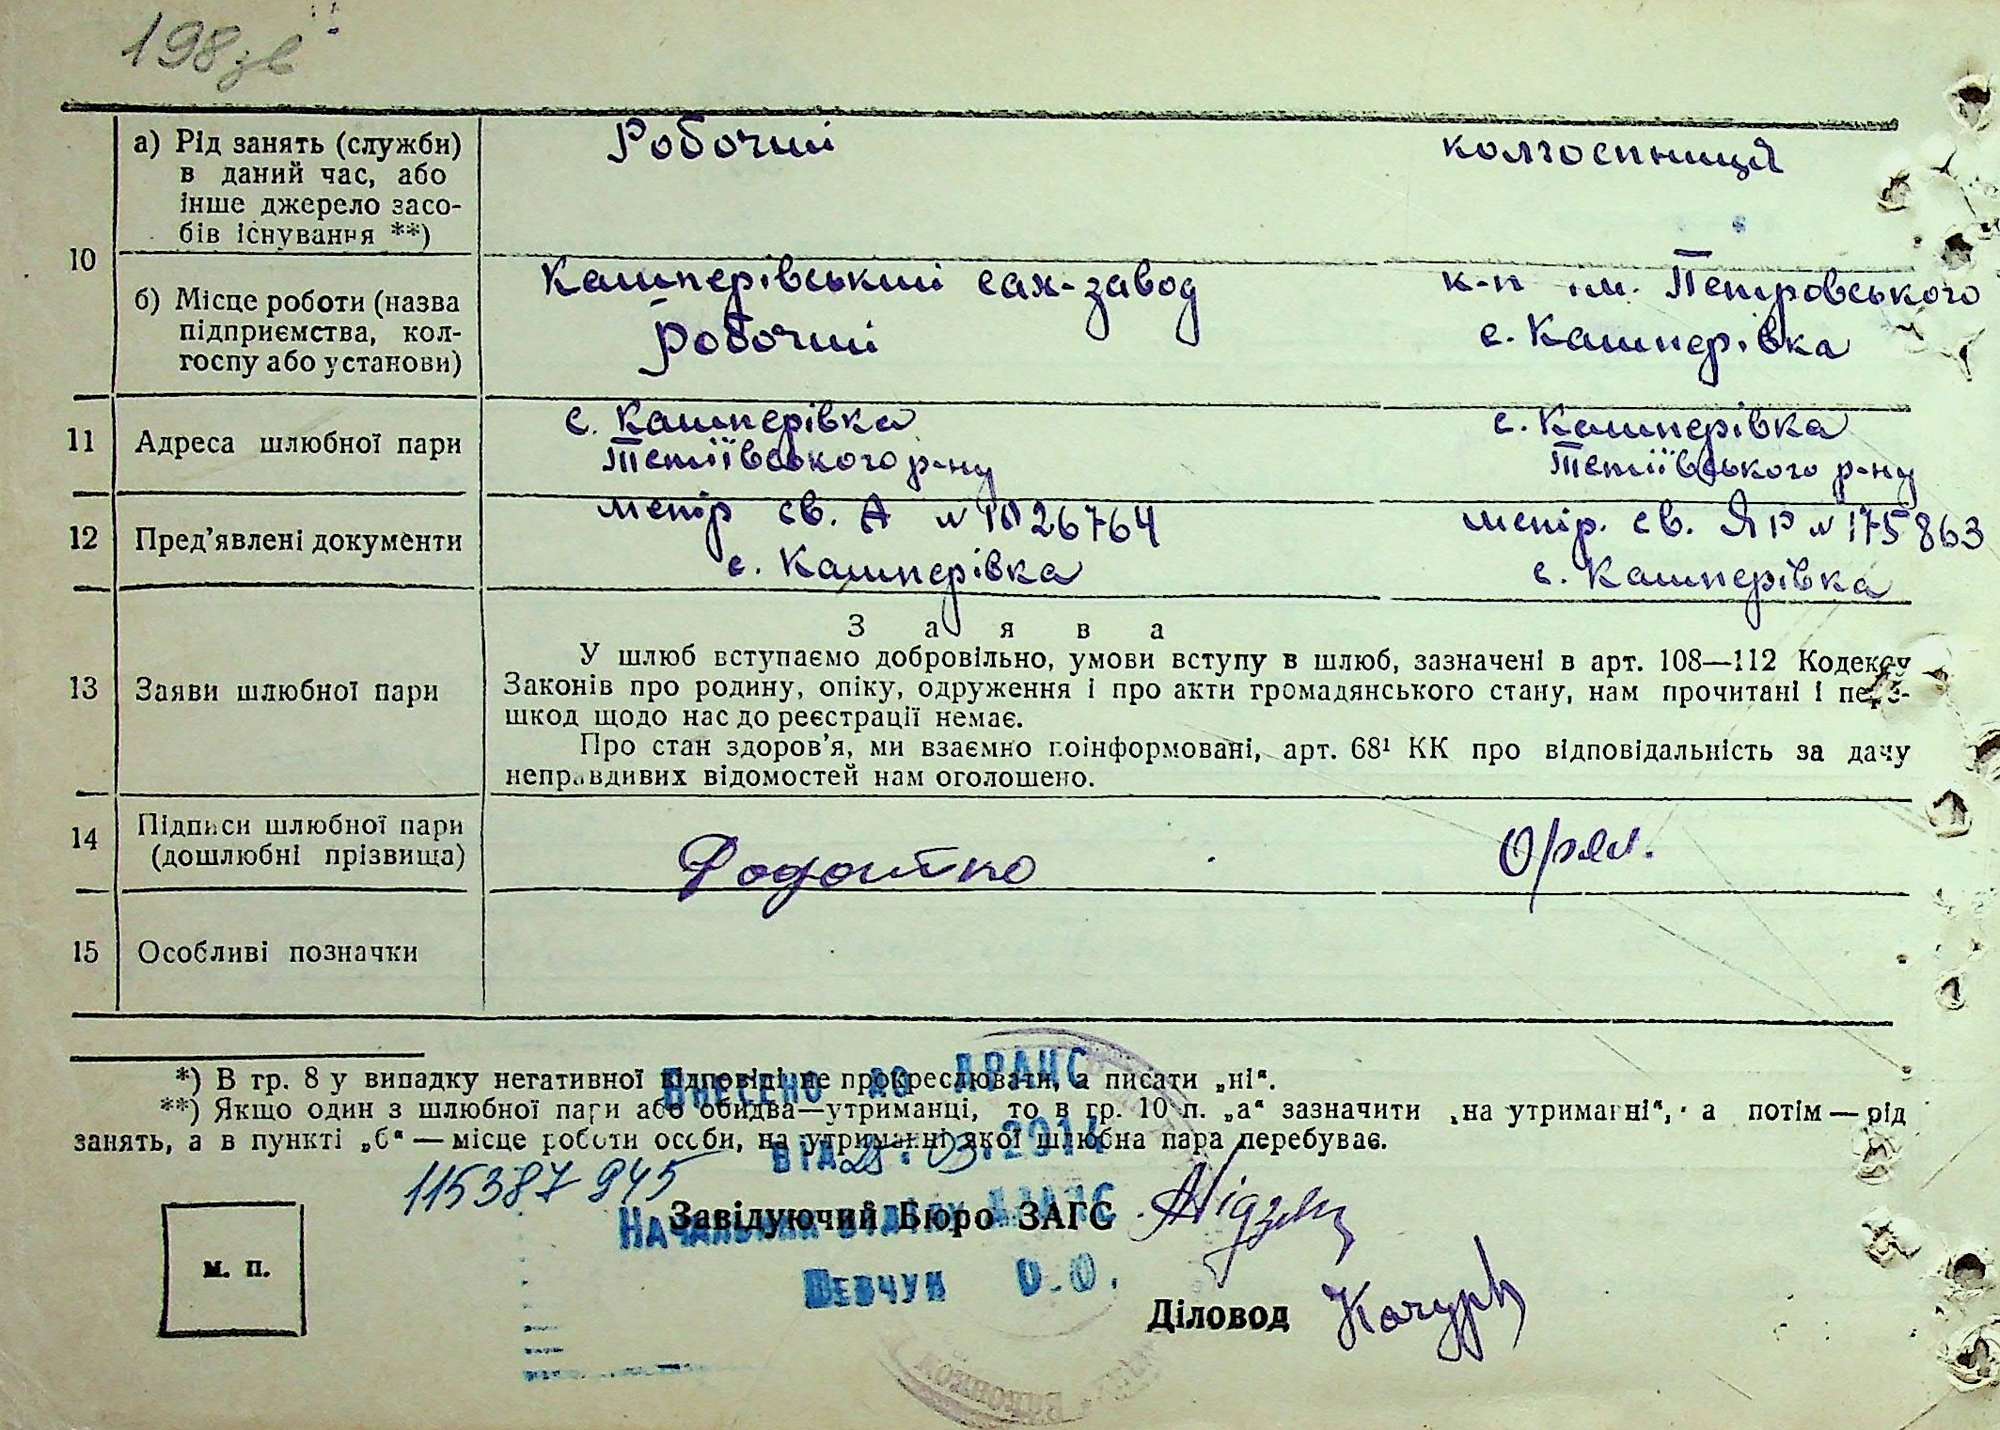 198зв
10
а) Рід занять (служби)
в даний час, або
інше джерело засо-
бів існування **)
Робочий
колгоспниця
б) Місце роботи (назва
підприємства, кол-
госпу або установи)
Кашперівський сах-завод
Робочий
к-п ім. Петровського
с. Кашперівка
11
Адреса шлюбної пари
с. Кашперівка
Тетіївського р-ну
с. Кашперівка
Тетіївського р-ну
12
Пред’явлені документи
метр св. А №
26764
с. Кашперівка
метр. св. ЯР № 175863
с. Кашперівка
13
Заяви шлюбної пари
З а я в а
У шлюб вступаємо добровільно, умови вступу в шлюб, зазначені в арт. 108—112 Кодексу
Законів про родину, опіку, одруження і про акти громадянського стану, нам прочитані і пере-
шкод щодо нас до реєстрації немає.
Про стан здоров’я, ми взаємно поінформовані, арт. 68¹ КК про відповідальність за дачу
неправдивих відомостей нам оголошено.
14
Підписи шлюбної пари
(дошлюбні прізвища)
15
Особливі позначки
*) В гр. 8 у випадку негативної відповіді не прокреслювати, а писати „ні“.
**) Якщо один з шлюбної пари або обидва—утриманці, то в гр. 10 п. „а“ зазначити „на утриманні“, а потім — рід
занять, а в пункті „б“ — місце роботи особи, на утриманні якої шлюбна пара перебуває.
Внесено до ДРАЦС
від 28.03.2014
115387945
Завідуючий Бюро ЗАГС
Начальник відділу ДРАЦС
Шевчук О.О.
м. п.
Діловод